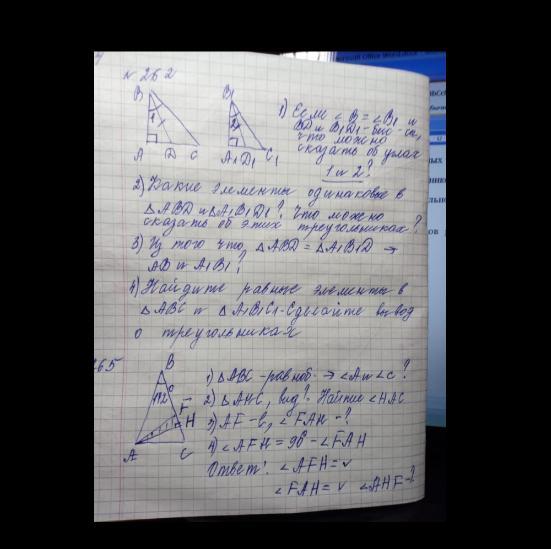 № 262
B
B1
1
2
A D C
A1 D1 C1
1) Если ∠B = ∠B1 и
BD и B1D1 - бис-сы,
что можно
сказать об углах
1 и 2?
2) Какие элементы одинаковые в
△ABD и △A1B1D1? Что можно
сказать об этих треугольниках?
3) Из того что △ABD = △A1B1D →
AB и A1B1?
4) Найдите равные элементы в
△ABC и △A1B1C1. Сделайте вывод
о треугольниках
265
B
112°
F
H
A C
1) △ABC - равноб. → ∠A и ∠C?
2) △AHC, вид? Найти ∠HAC
3) AF - б, ∠FAH - ?
4) ∠AFH = 90° - ∠FAH
Ответ: ∠AFH = v
∠FAH = v ∠AHF - ?